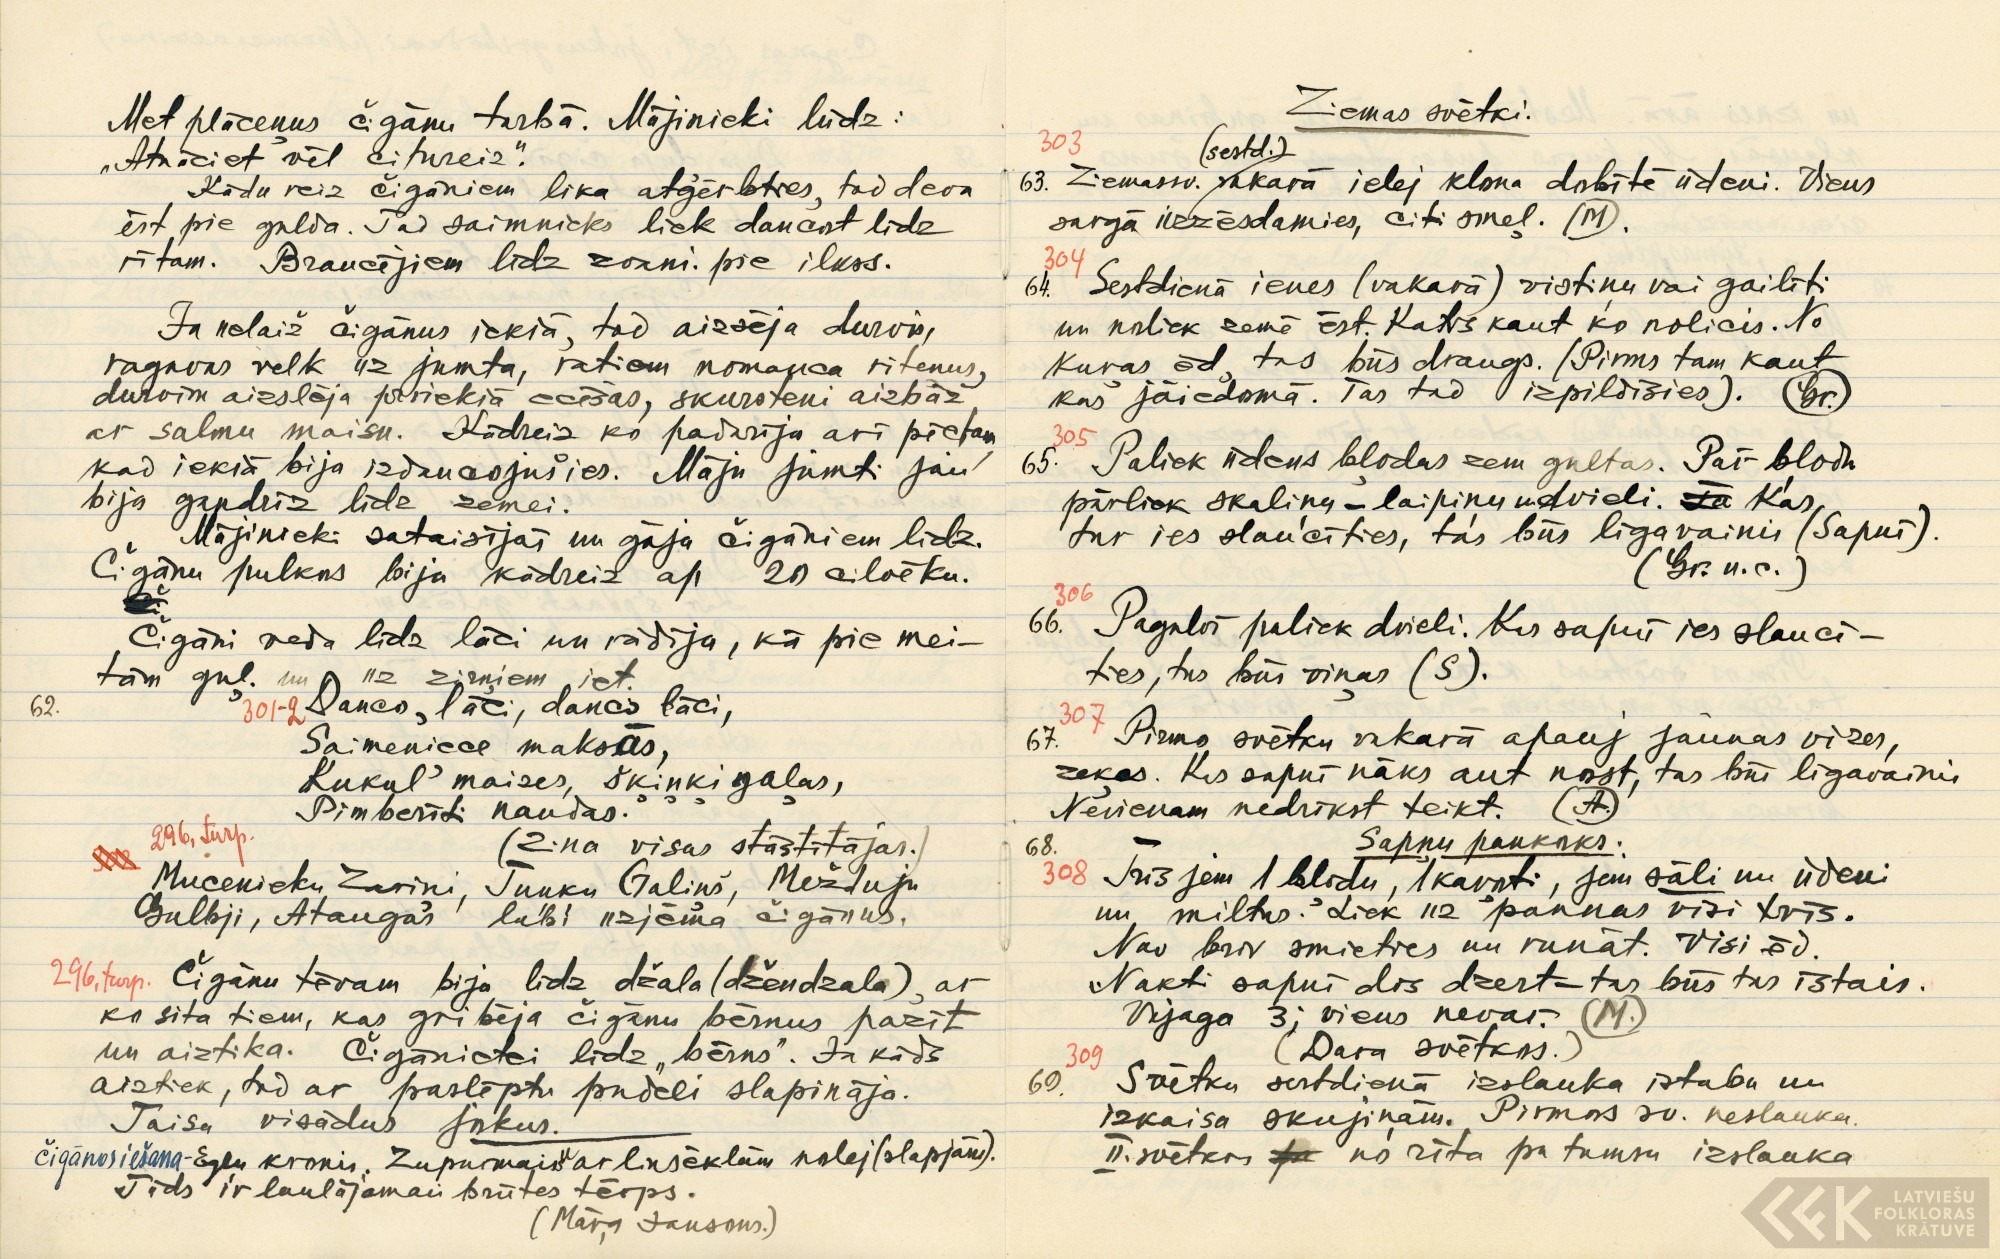 Met plāceņus čigānu tarbā. Mājinieki lūdz:
„Atnāciet vēl citureiz".
Kādu reiz čigāniem lika atģērbties, tad deva
ēst pie galda. Tad saimnieks liek dancot līdz
rītam. Braucējiem līdz zvani pie ilkss.
Ja nelaiž čigānus iekšā, tad aizsēja durvis,
ragavas velk uz jumta, ratiem nomauca riteņus,
durvīm aizslēja priekšā ecēšas, skursteni aizbāž
ar salmu maisu. Kādreiz ko padarīja arī pēctam,
kad iekšā bija izdancojušies. Māju jumti jau
bija gandrīz līdz zemei.
Mājinieki sataisījās un gāja čigāniem līdz.
Čigānu pulkos bija kādreiz ap 20 cilvēku.
Čigāni veda līdz lāci un rādīja, kā pie mei-
tām guļ. un uz zirņiem iet.
62. 301-2 Danco, lāci, danco lāci,
Saimeniece maksās,
Kukul' maizes, šķiņķi gaļas,
Pimberīti naudas.
(Zina visas stāstītājas.)
296, turp.
Mucenieku Zariņi, Junku Galiņš, Mežduju
Gulbji, Ataugas labi uzjēma čigānus.
296, turp. Čigānu tēvam bija līdz džala (džendzala), ar
ko sita tiem, kas gribēja čigānu bērnus pazīt
un aiztika. Čigānietei līdz „bērns". Ja kāds
aiztiek, tad ar paslēptu pudeli slapināja.
Taisa visādus jokus.
čigānos iešana - Egļu kronis. Zupurmaiss ar linsēklām nolej (slapjām).
Tāds ir laulājamais brūtes tērps.
(Māra Jansons.)
Ziemas svētki.
303
(sestd.)
63. Ziemassv. vakarā ielej klona dobītē ūdeni. Viens
sargā uzzēsdamies, citi smeļ. (M).
304
64. Sestdienā ienes (vakarā) vistiņu vai gailīti
un noliek zemē ēst. Katrs kaut ko nolicis. No
kuras ēd, tas būs draugs. (Pirms tam kaut
kas jāiedomā. Tas tad izpildīsies). (Gr.)
305
65. Paliek ūdens blodas zem gultas. Par blodu
pārliek skaliņu – laipiņu un dvieli. Kas
tur ies slaucīties, tas būs līgavainis (Sapnī).
(Gr. u.c.)
306
66. Pagalvī paliek dvieli. Kas sapnī ies slaucī-
ties, tas būs viņas (S).
307
67. Pirmo svētku vakarā apauj jaunas vīzes,
zeķes. Kas sapnī nāks aut nost, tas būs līgavainis
Nevienam nedrīkst teikt. (A.)
68. Sapņu pankoks.
308 Trīs jem 1 blodu, 1 karoti, jem sāli un ūdeni
un miltus. Liek uz pannas visi trīs.
Nav brīv smieties un runāt. Visi ēd.
Naktī sapnī dos dzert – tas būs tas īstais.
Vajaga 3; viens nevar. (M.)
(Dara svētkos.)
309
69. Svētku sestdienā izslauka istabu un
izkaisa skujiņām. Pirmos sv. neslauka.
II. svētkos no rīta pa tumsu izslauka
LATVIEŠU
FOLKLORAS
KRĀTUVE